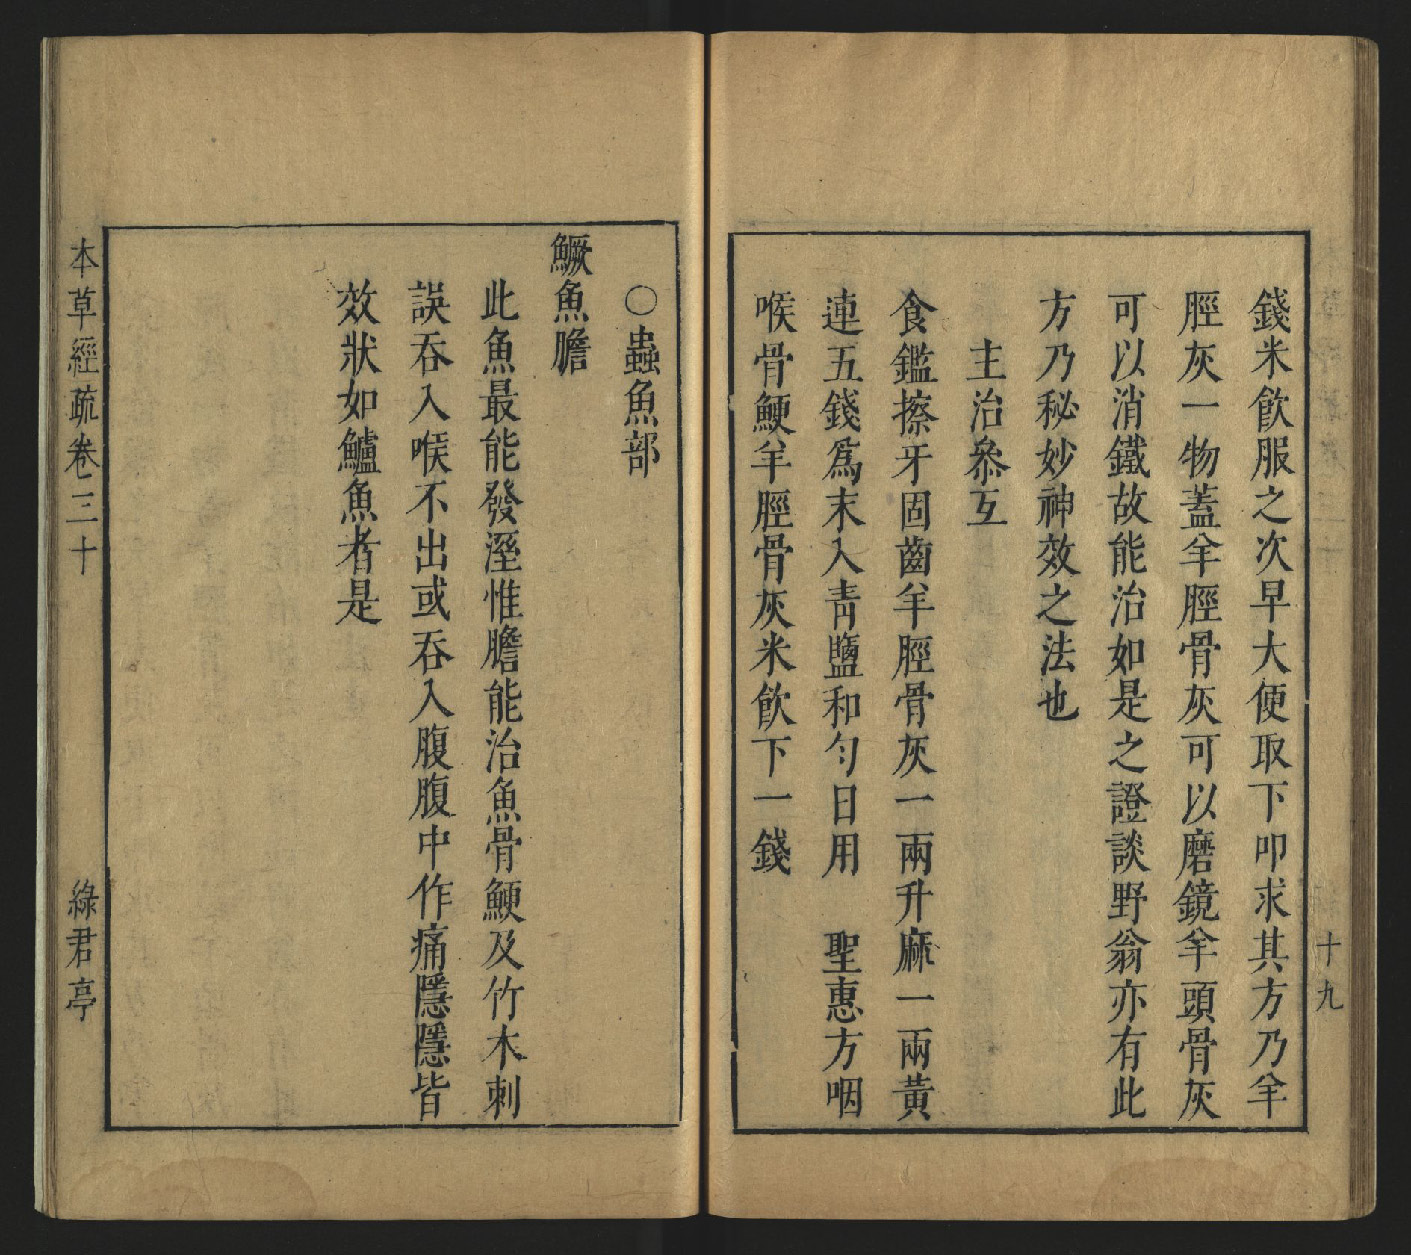 錢米飲服之次早大便取下叩求其方乃羊
脛灰一物蓋羊脛骨灰可以磨鏡羊頭骨灰
可以消鐵故能治如是之證談野翁亦有此
方乃秘妙神效之法也
主治叅互
食鑑擦牙固齒羊脛骨灰一兩升麻一兩黃
連五錢爲末入青鹽和勻日用　聖惠方咽
喉骨鯁羊脛骨灰米飲下一錢
十九
○蟲魚部
鱖魚膽
此魚最能發溼惟膽能治魚骨鯁及竹木刺
誤吞入喉不出或吞入腹腹中作痛隱隱皆
效狀如鱸魚者是
本草經疏卷三十
綠君亭